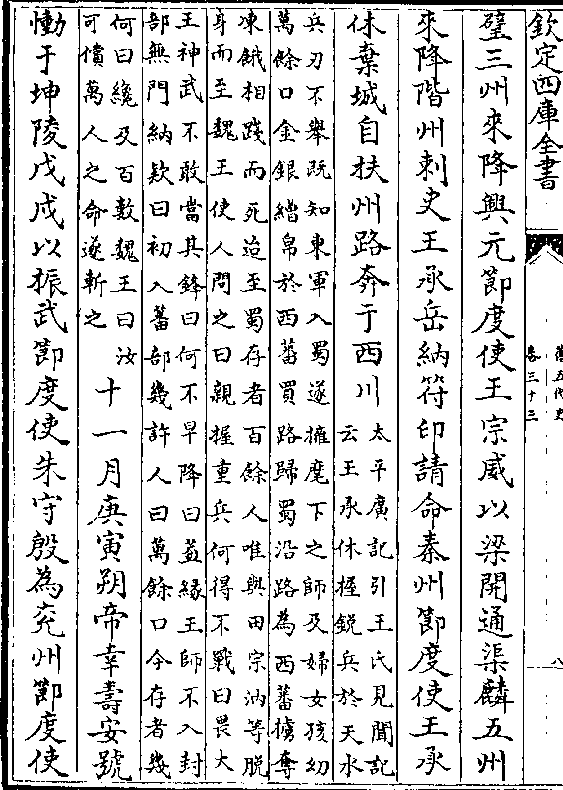 欽定四庫全書
舊五代史
卷三十三
八
璧三州來降興元節度使王宗威以梁開通渠麟五州
來降階州刺史王承岳納符印請命秦州節度使王承
休棄城自扶州路奔于西川
太平廣記引王氏見聞記
云王承休握銳兵於天水
兵刃不舉既知東軍入蜀遂擁麾下之師及婦女孩幼
萬餘口金銀繒帛於西蕃買路歸蜀沿路為西蕃擄奪
凍餓相踐而死迨至蜀存者百餘人唯與田宗汭等脫
身而至魏王使人問之曰親握重兵何得不戰曰畏大
王神武不敢當其鋒曰何不早降曰葢緣王師不入封
部無門納欵曰初入蕃部幾許人曰萬餘口今存者幾
何曰纔及百數魏王曰汝
可償萬人之命遂斬之
十一月庚寅朔帝幸壽安號
慟于坤陵戊戌以振武節度使朱守殷為兖州節度使